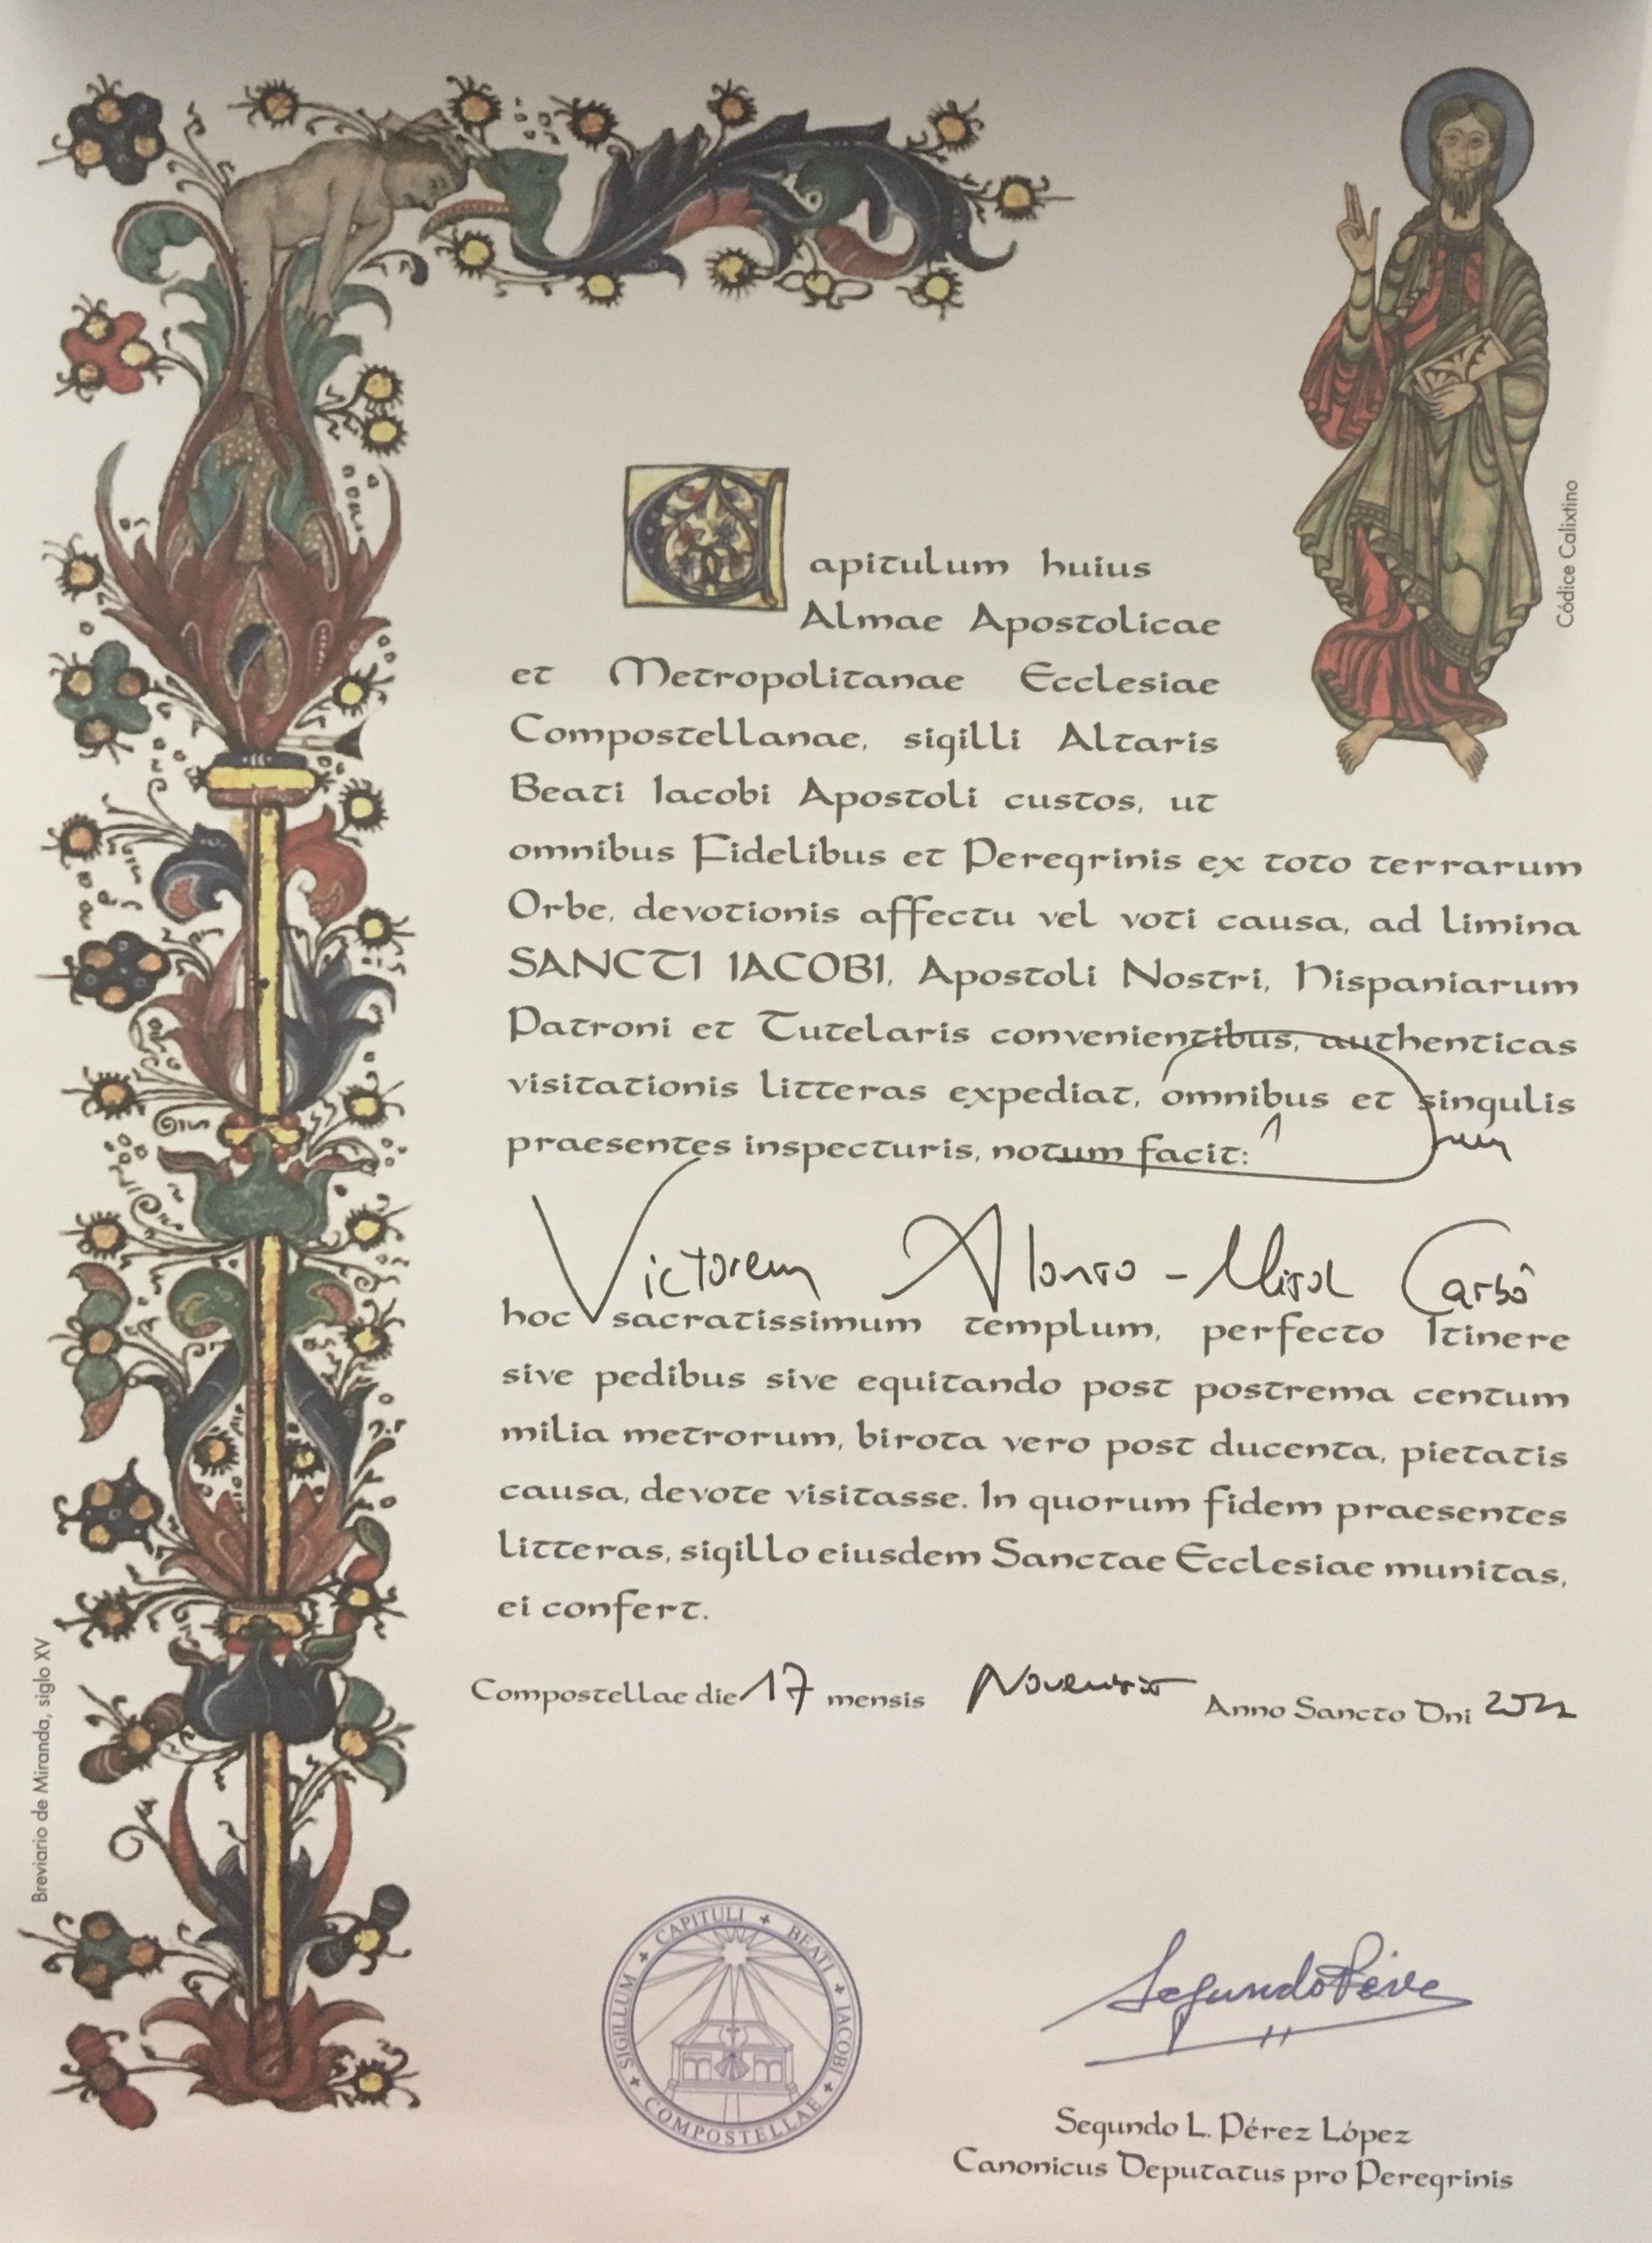 Capitulum huius
Almae Apostolicae
et Metropolitanae Ecclesiae
Compostellanae, sigilli Altaris
Beati Iacobi Apostoli custos, ut
omnibus Fidelibus et Peregrinis ex toto terrarum
Orbe, devotionis affectu vel voti causa, ad limina
SANCTI IACOBI, Apostoli Nostri, Hispaniarum
Patroni et Tutelaris convenientibus, authenticas
visitationis litteras expediat, omnibus et singulis
praesentes inspecturis, notum facit:
Victorem Alonso-Misol Carbó
hoc sacratissimum templum, perfecto Itinere
sive pedibus sive equitando post postrema centum
milia metrorum, birota vero post ducenta, pietatis
causa, devote visitasse. In quorum fidem praesentes
litteras, sigillo eiusdem Sanctae Ecclesiae munitas,
ei confert.
Compostellae die 17 mensis Novembris Anno Sancto Dni 2022
SIGILLUM + CAPITULI + BEATI + IACOBI + COMPOSTELLAE +
Segundo Pérez
Segundo L. Pérez López
Canonicus Deputatus pro Peregrinis
Códice Calixtino
Breviario de Miranda, siglo XV